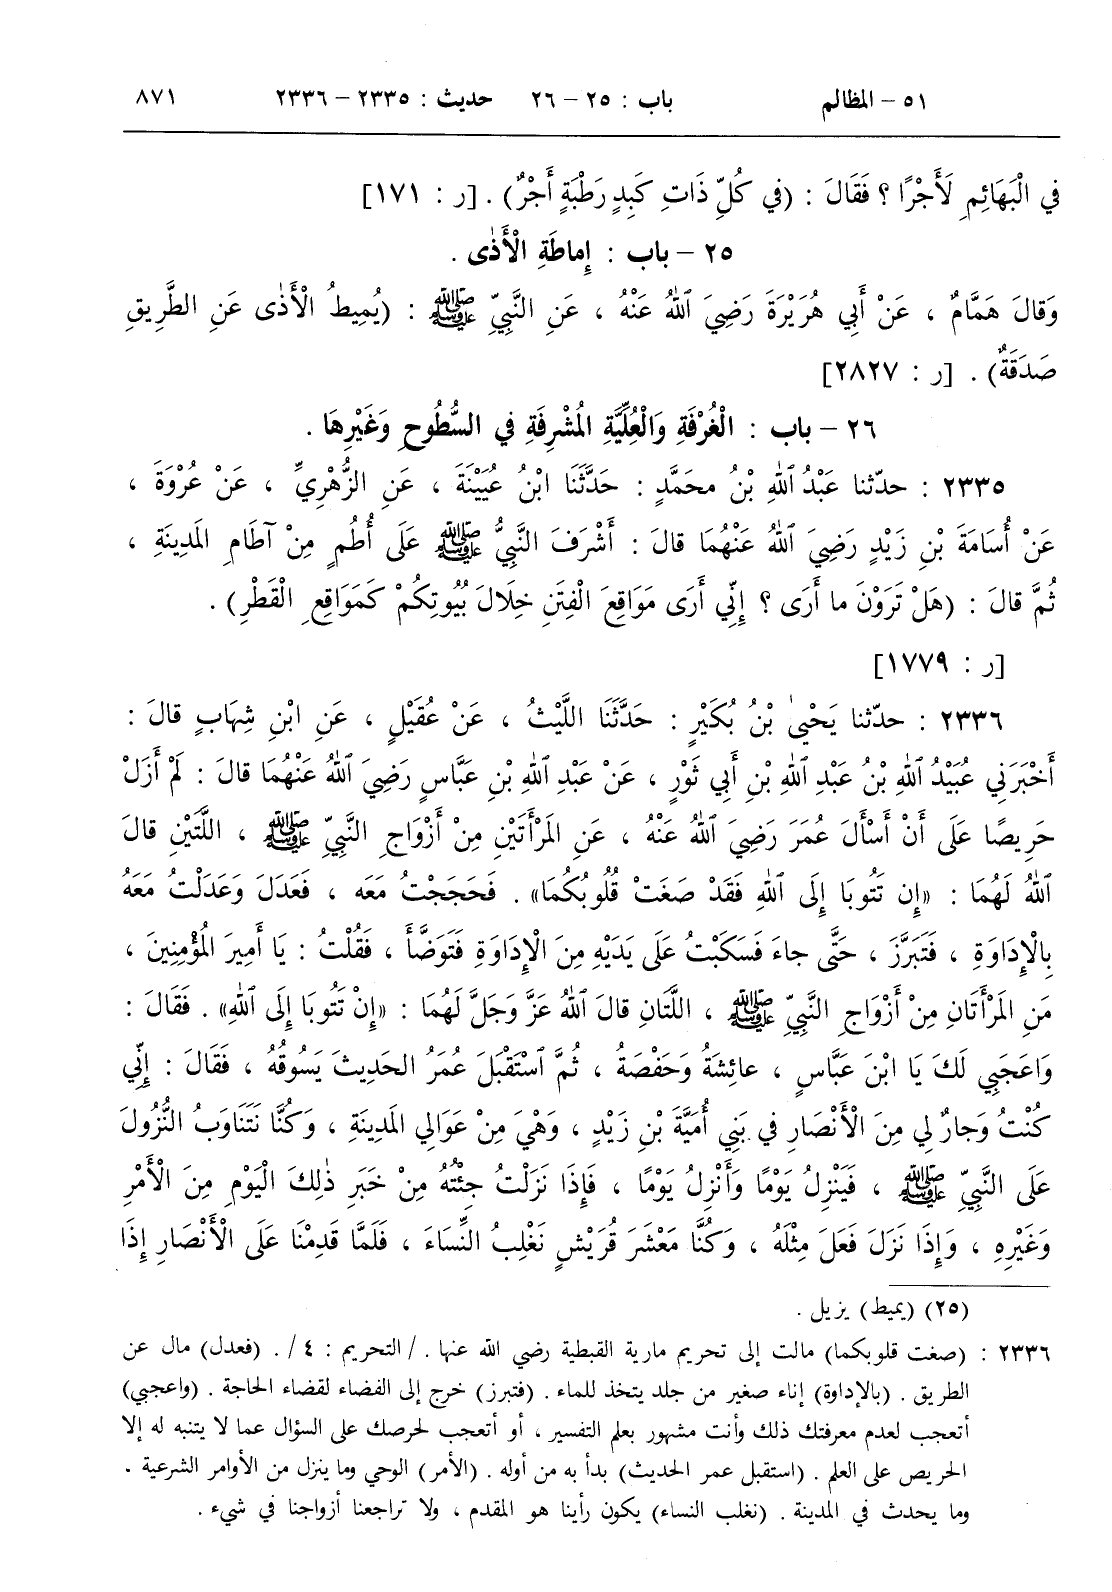 ٥١ – المظالم باب : ٢٥ – ٢٦ حديث : ٢٣٣٥ – ٢٣٣٦ ٨٧١
في الْبَهَائِمِ لَأَجْرًا ؟ فَقَالَ : (في كُلِّ ذَاتِ كَبِدٍ رَطْبَةٍ أَجْرٌ) . [ر : ١٧١]
٢٥ – باب : إِماطَةِ الْأَذَى .
وَقالَ هَمَّامٌ ، عَنْ أَبِي هُرَيْرَةَ رَضِيَ ٱللهُ عَنْهُ ، عَنِ النَّبِيِّ ﷺ : (يُمِيطُ الْأَذَى عَنِ الطَّرِيقِ
صَدَقَةٌ) . [ر : ٢٨٢٧]
٢٦ – باب : الْغُرْفَةِ وَالْعُلِّيَّةِ المُشْرِفَةِ في السُّطُوحِ وَغَيْرِهَا .
٢٣٣٥ : حدّثنا عَبْدُ ٱللهِ بْنُ محَمَّدٍ : حَدَّثَنَا ابْنُ عُيَيْنَةَ ، عَنِ الزُّهْرِيِّ ، عَنْ عُرْوَةَ ،
عَنْ أُسَامَةَ بْنِ زَيْدٍ رَضِيَ ٱللهُ عَنْهُمَا قالَ : أَشْرَفَ النَّبِيُّ ﷺ عَلَى أُطُمٍ مِنْ آطَامِ المَدِينَةِ ،
ثُمَّ قالَ : (هَلْ تَرَوْنَ ما أَرَى ؟ إِنِّي أَرَى مَوَاقِعَ الْفِتَنِ خِلَالَ بُيُوتِكُمْ كَمَوَاقِعِ الْقَطْرِ) .
[ر : ١٧٧٩]
٢٣٣٦ : حدّثنا يَحْيىٰ بْنُ بُكَيْرٍ : حَدَّثَنَا اللَّيْثُ ، عَنْ عُقَيْلٍ ، عَنِ ابْنِ شِهَابٍ قالَ :
أَخْبَرَنِي عُبَيْدُ ٱللهِ بْنُ عَبْدِ ٱللهِ بْنِ أَبِي ثَوْرٍ ، عَنْ عَبْدِ ٱللهِ بْنِ عَبَّاسٍ رَضِيَ ٱللهُ عَنْهُمَا قالَ : لَمْ أَزَلْ
حَرِيصًا عَلَى أَنْ أَسْأَلَ عُمَرَ رَضِيَ ٱللهُ عَنْهُ ، عَنِ المَرْأَتَيْنِ مِنْ أَزْوَاجِ النَّبِيِّ ﷺ ، اللَّتَيْنِ قالَ
ٱللهُ لَهُمَا : «إِن تَتُوبَا إِلَى ٱللهِ فَقَدْ صَغَتْ قُلُوبُكُمَا» . فَحَجَجْتُ مَعَه ، فَعَدَلَ وَعَدَلْتُ مَعَهُ
بِالْإِدَاوَةِ ، فَتَبَرَّزَ ، حَتَّى جاءَ فَسَكَبْتُ عَلَى يَدَيْهِ مِنَ الْإِدَاوَةِ فَتَوَضَّأَ ، فَقُلْتُ : يَا أَمِيرَ المُؤْمِنِينَ ،
مَنِ المَرْأَتَانِ مِنْ أَزْوَاجِ النَّبِيِّ ﷺ ، اللَّتَانِ قالَ ٱللهُ عَزَّ وَجَلَّ لَهُمَا : «إِنْ تَتُوبَا إِلَى ٱللهِ» . فَقَالَ :
وَاعَجَبِي لَكَ يَا ابْنَ عَبَّاسٍ ، عائِشَةُ وَحَفْصَةُ ، ثُمَّ ٱسْتَقْبَلَ عُمَرُ الحَدِيثَ يَسُوقُهُ ، فَقَالَ : إِنِّي
كُنْتُ وَجارٌ لِي مِنَ الْأَنْصَارِ فِي بَنِي أُمَيَّةَ بْنِ زَيْدٍ ، وَهْيَ مِنْ عَوَالِي المَدِينَةِ ، وَكُنَّا نَتَنَاوَبُ النُّزُولَ
عَلَى النَّبِيِّ ﷺ ، فَيَنْزِلُ يَوْمًا وَأَنْزِلُ يَوْمًا ، فَإِذَا نَزَلْتُ جِئْتُهُ مِنْ خَبَرِ ذٰلِكَ الْيَوْمِ مِنَ الْأَمْرِ
وَغَيْرِهِ ، وَإِذَا نَزَلَ فَعَلَ مِثْلَهُ ، وَكُنَّا مَعْشَرَ قُرَيْشٍ نَغْلِبُ النِّسَاءَ ، فَلَمَّا قَدِمْنَا عَلَى الْأَنْصَارِ إِذَا
(٢٥) (يميط) يزيل .
٢٣٣٦ : (صغت قلوبكما) مالت إلى تحريم مارية القبطية رضي الله عنها . / التحريم : ٤ / . (فعدل) مال عن
الطريق . (بالإداوة) إناء صغير من جلد يتخذ للماء . (فتبرز) خرج إلى الفضاء لقضاء الحاجة . (واعجبي)
أتعجب لعدم معرفتك ذلك وأنت مشهور بعلم التفسير ، أو أتعجب لحرصك على السؤال عما لا يتنبه له إلا
الحريص على العلم . (استقبل عمر الحديث) بدأ به من أوله . (الأمر) الوحي وما ينزل من الأوامر الشرعية .
وما يحدث في المدينة . (نغلب النساء) يكون رأينا هو المقدم ، ولا تراجعنا أزواجنا في شيء .